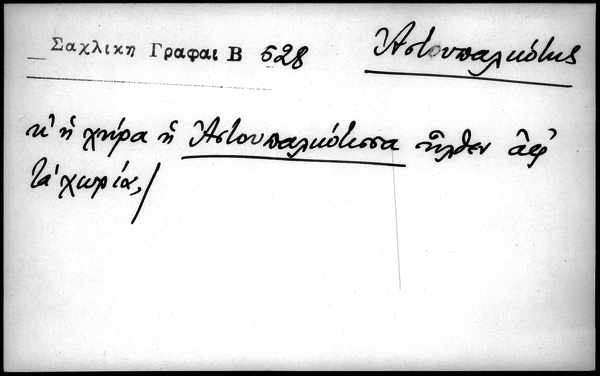 Σαχλικη Γραφαι Β 528
Ἀστουπαλκότης
κ' ἡ χήρα ἡ Ἀστουπαλκότισσα ἦλθεν ἀφ'
τὰ χωρία,/